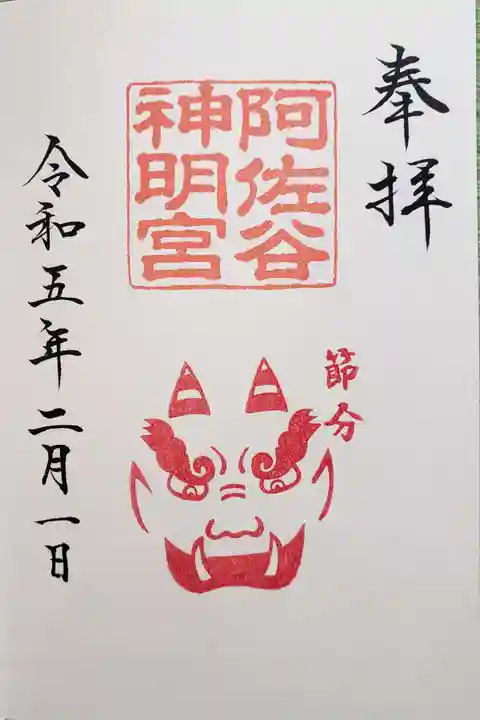 奉拝
阿佐谷
神明宮
節分
令和五年二月一日